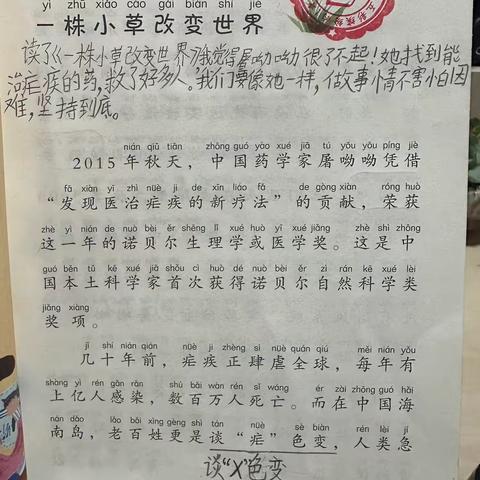 yì zhū xiǎo cǎo gǎi biàn shì jiè
一株小草改变世界
读了《一株小草改变世界》我觉得屠呦呦很了不起！她找到能
治疟疾的药，救了好多人。我们要像她一样，做事情不害怕困
难，坚持到底。
nián qiū tiān zhōng guó yào xué jiā tú yōu yōu píng jiè
2015年秋天，中国药学家屠呦呦凭借
fā xiàn yī zhì nüè ji de xīn liáo fǎ de gòng xiàn róng huò
“发现医治疟疾的新疗法”的贡献，荣获
zhè yì nián de nuò bèi ěr shēng lǐ xué huò yī xué jiǎng zhè shì zhōng
这一年的诺贝尔生理学或医学奖。这是中
guó běn tǔ kē xué jiā shǒu cì huò dé nuò bèi ěr zì rán kē xué lèi
国本土科学家首次获得诺贝尔自然科学类
jiǎng xiàng
奖项。
jǐ shí nián qián nüè ji zhèng sì nüè quán qiú měi nián yǒu
几十年前，疟疾正肆虐全球，每年有
shàng yì rén gǎn rǎn shù bǎi wàn rén sǐ wáng ér zài zhōng guó hǎi
上亿人感染，数百万人死亡。而在中国海
nán dǎo lǎo bǎi xìng gèng shì tán nüè sè biàn rén lèi jí
南岛，老百姓更是谈“疟”色变，人类急
谈“X”色变